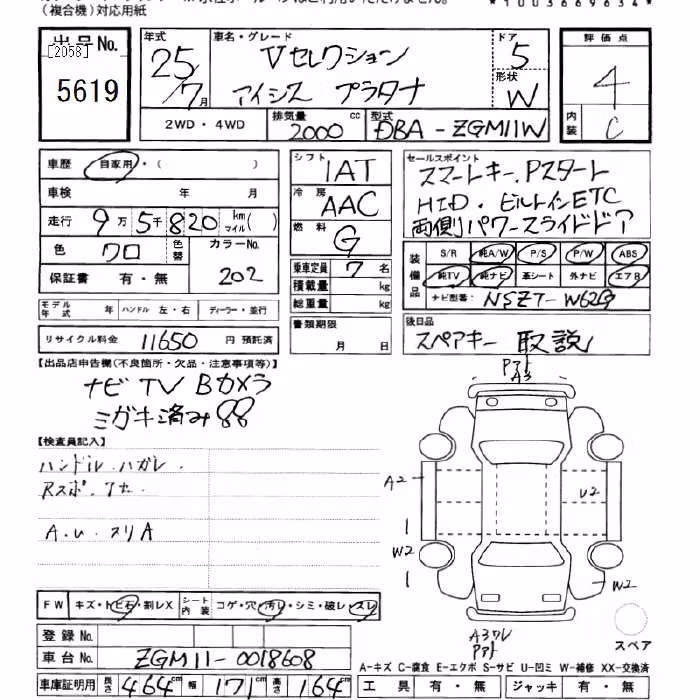 （複合機）対応用紙
*1003669634*
出品No.
[2058]
5619
年式
25/7月
車名・グレード
Vセレクション
アイシス プラタナ
ドア
5
形状
W
評価点
4
内装
C
2WD・4WD
排気量
2000 cc
型式
DBA-ZGM11W
車歴 自家用・（ ）
車検 年 月
走行 9万5千820 km マイル（ ）
色 クロ 色替 カラーNo. 202
保証書 有・無
モデル年式 年 ハンドル 左・右 ディーラー・並行
リサイクル料金 11650 円 預託済
シフト
IAT
冷房
AAC
燃料
G
乗車定員 7 名
積載量 kg
総重量 kg
書類期限
月 日
セールスポイント
スマートキー. Pスタート
HID・ビルトインETC
両側パワースライドドア
装備品
S/R 純A/W P/S P/W ABS
純TV 純ナビ 革シート 外ナビ エアB
ナビ型番: NSZT-W62G
後日品
スペアキー 取説
【出品店申告欄(不良箇所・欠品・注意事項等)】
ナビ TV Bカメラ
ミガキ済み 88
【検査員記入】
ハンドル ハガレ.
A.U.スリA
アト
A3
A2
U2
W2
W2
A3ワレ
アト
スペア
FW キズ・トビ石・割レX シート内装 コゲ・穴・汚レ・シミ・破レ・スレ
登録No.
車台No. ZGM11-0018608
車庫証明用 長さ 464cm 幅 171cm 高さ 164cm
A-キズ C-腐食 E-エクボ S-サビ U-凹ミ W-補修 XX-交換済
工具 有・無 ジャッキ 有・無